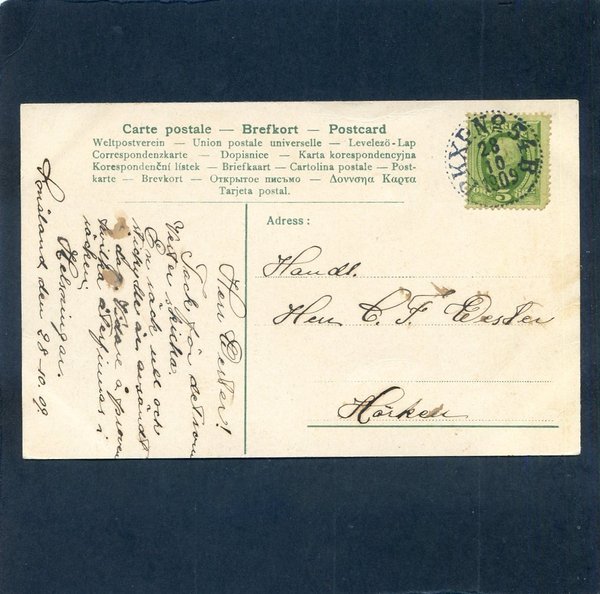 Carte postale — Brefkort — Postcard
Weltpostverein — Union postale universelle — Levelezö-Lap
Correspondenzkarte — Dopisnice — Karta korespondencyjna
Korespondenční lístek — Briefkaart — Cartolina postale — Post-
karte — Brevkort — Открытое письмо — Δοννσηα Καρτα
Tarjeta postal.
PKXP Nº 54 B
28
10
1909
5
Adress:
Handl.
Herr C. F. Wester
Hörken
Herr Wester!
Tack för
Vester skicka
En säck mel och
är avsändt
i dag
i
säcken.
Helsningar.
den 28-10 09.